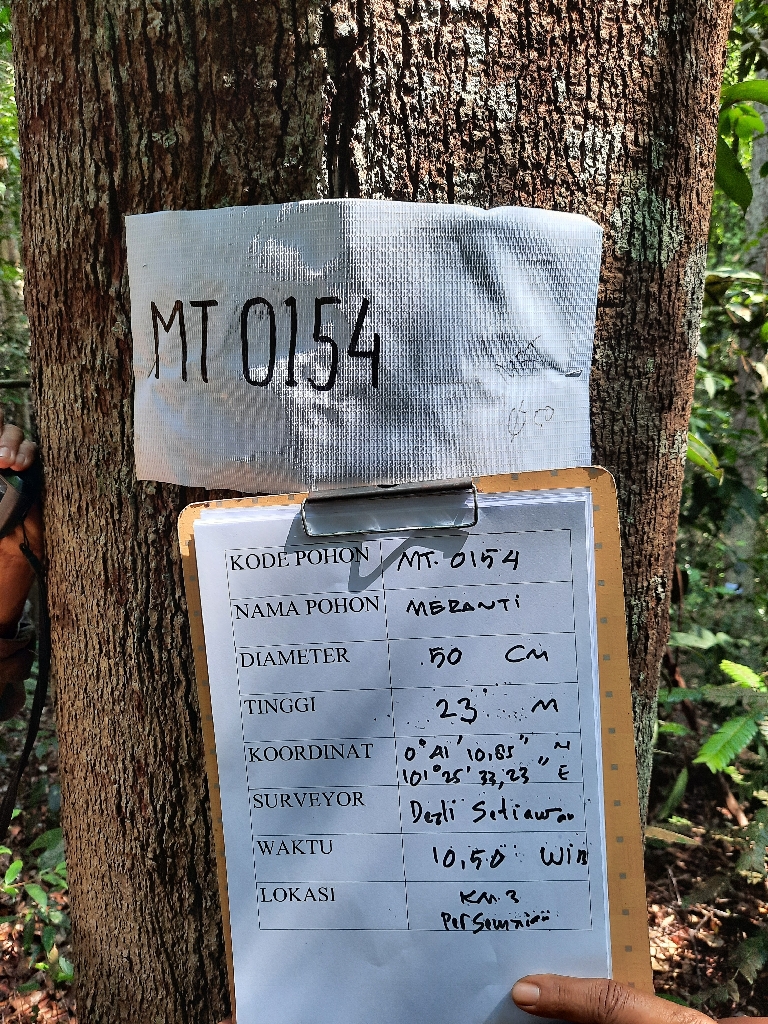 MT 0154
KODE POHON MT. 0154
NAMA POHON MERANTI
DIAMETER 50 CM
TINGGI 23 M
KOORDINAT 0° 41' 10,85" N
101° 25' 33,23" E
SURVEYOR Setiawan
WAKTU 10,50 WIB
LOKASI KM 3